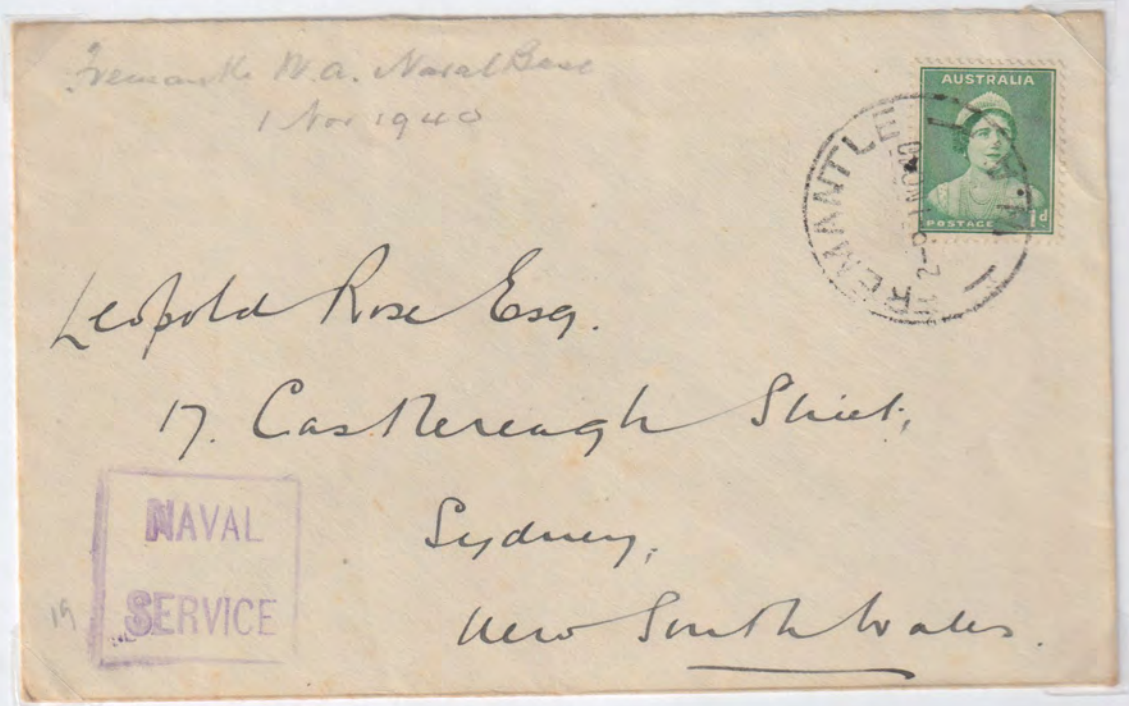 Fremantle W.A. Naval Base
1 Nov 1940
AUSTRALIA
POSTAGE 1d
FREMANTLE W.A.
1 NOV
Leopold Rose Esq.
17. Castlereagh Street,
Sydney,
New South Wales.
NAVAL
SERVICE
19